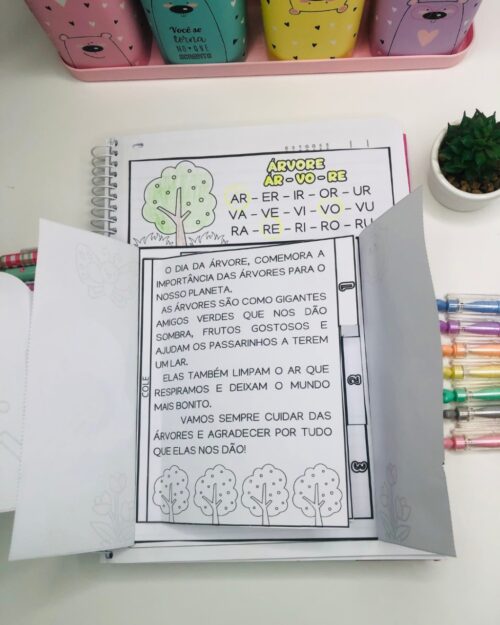 Você se
terna
ÁRVORE
AR - VO - RE
AR - ER - IR - OR - UR
VA - VE - VI - VO - VU
RA - RE - RI - RO - RU
O DIA DA ÁRVORE, COMEMORA A
IMPORTÂNCIA DAS ÁRVORES PARA O
NOSSO PLANETA.
AS ÁRVORES SÃO COMO GIGANTES
AMIGOS VERDES QUE NOS DÃO
SOMBRA, FRUTOS GOSTOSOS E
AJUDAM OS PASSARINHOS A TEREM
UM LAR.
ELAS TAMBÉM LIMPAM O AR QUE
RESPIRAMOS E DEIXAM O MUNDO
MAIS BONITO.
VAMOS SEMPRE CUIDAR DAS
ÁRVORES E AGRADECER POR TUDO
QUE ELAS NOS DÃO!
COLE
1
2
3